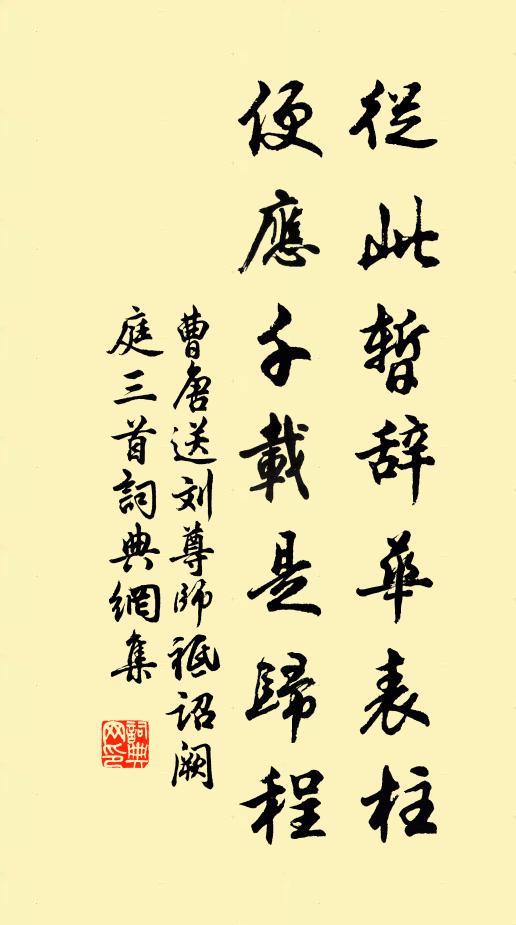 從此暫辞華表柱
便應千載是歸程
曹唐送刘尊師祗诏阙
庭三首詞典網集
詞典
网印